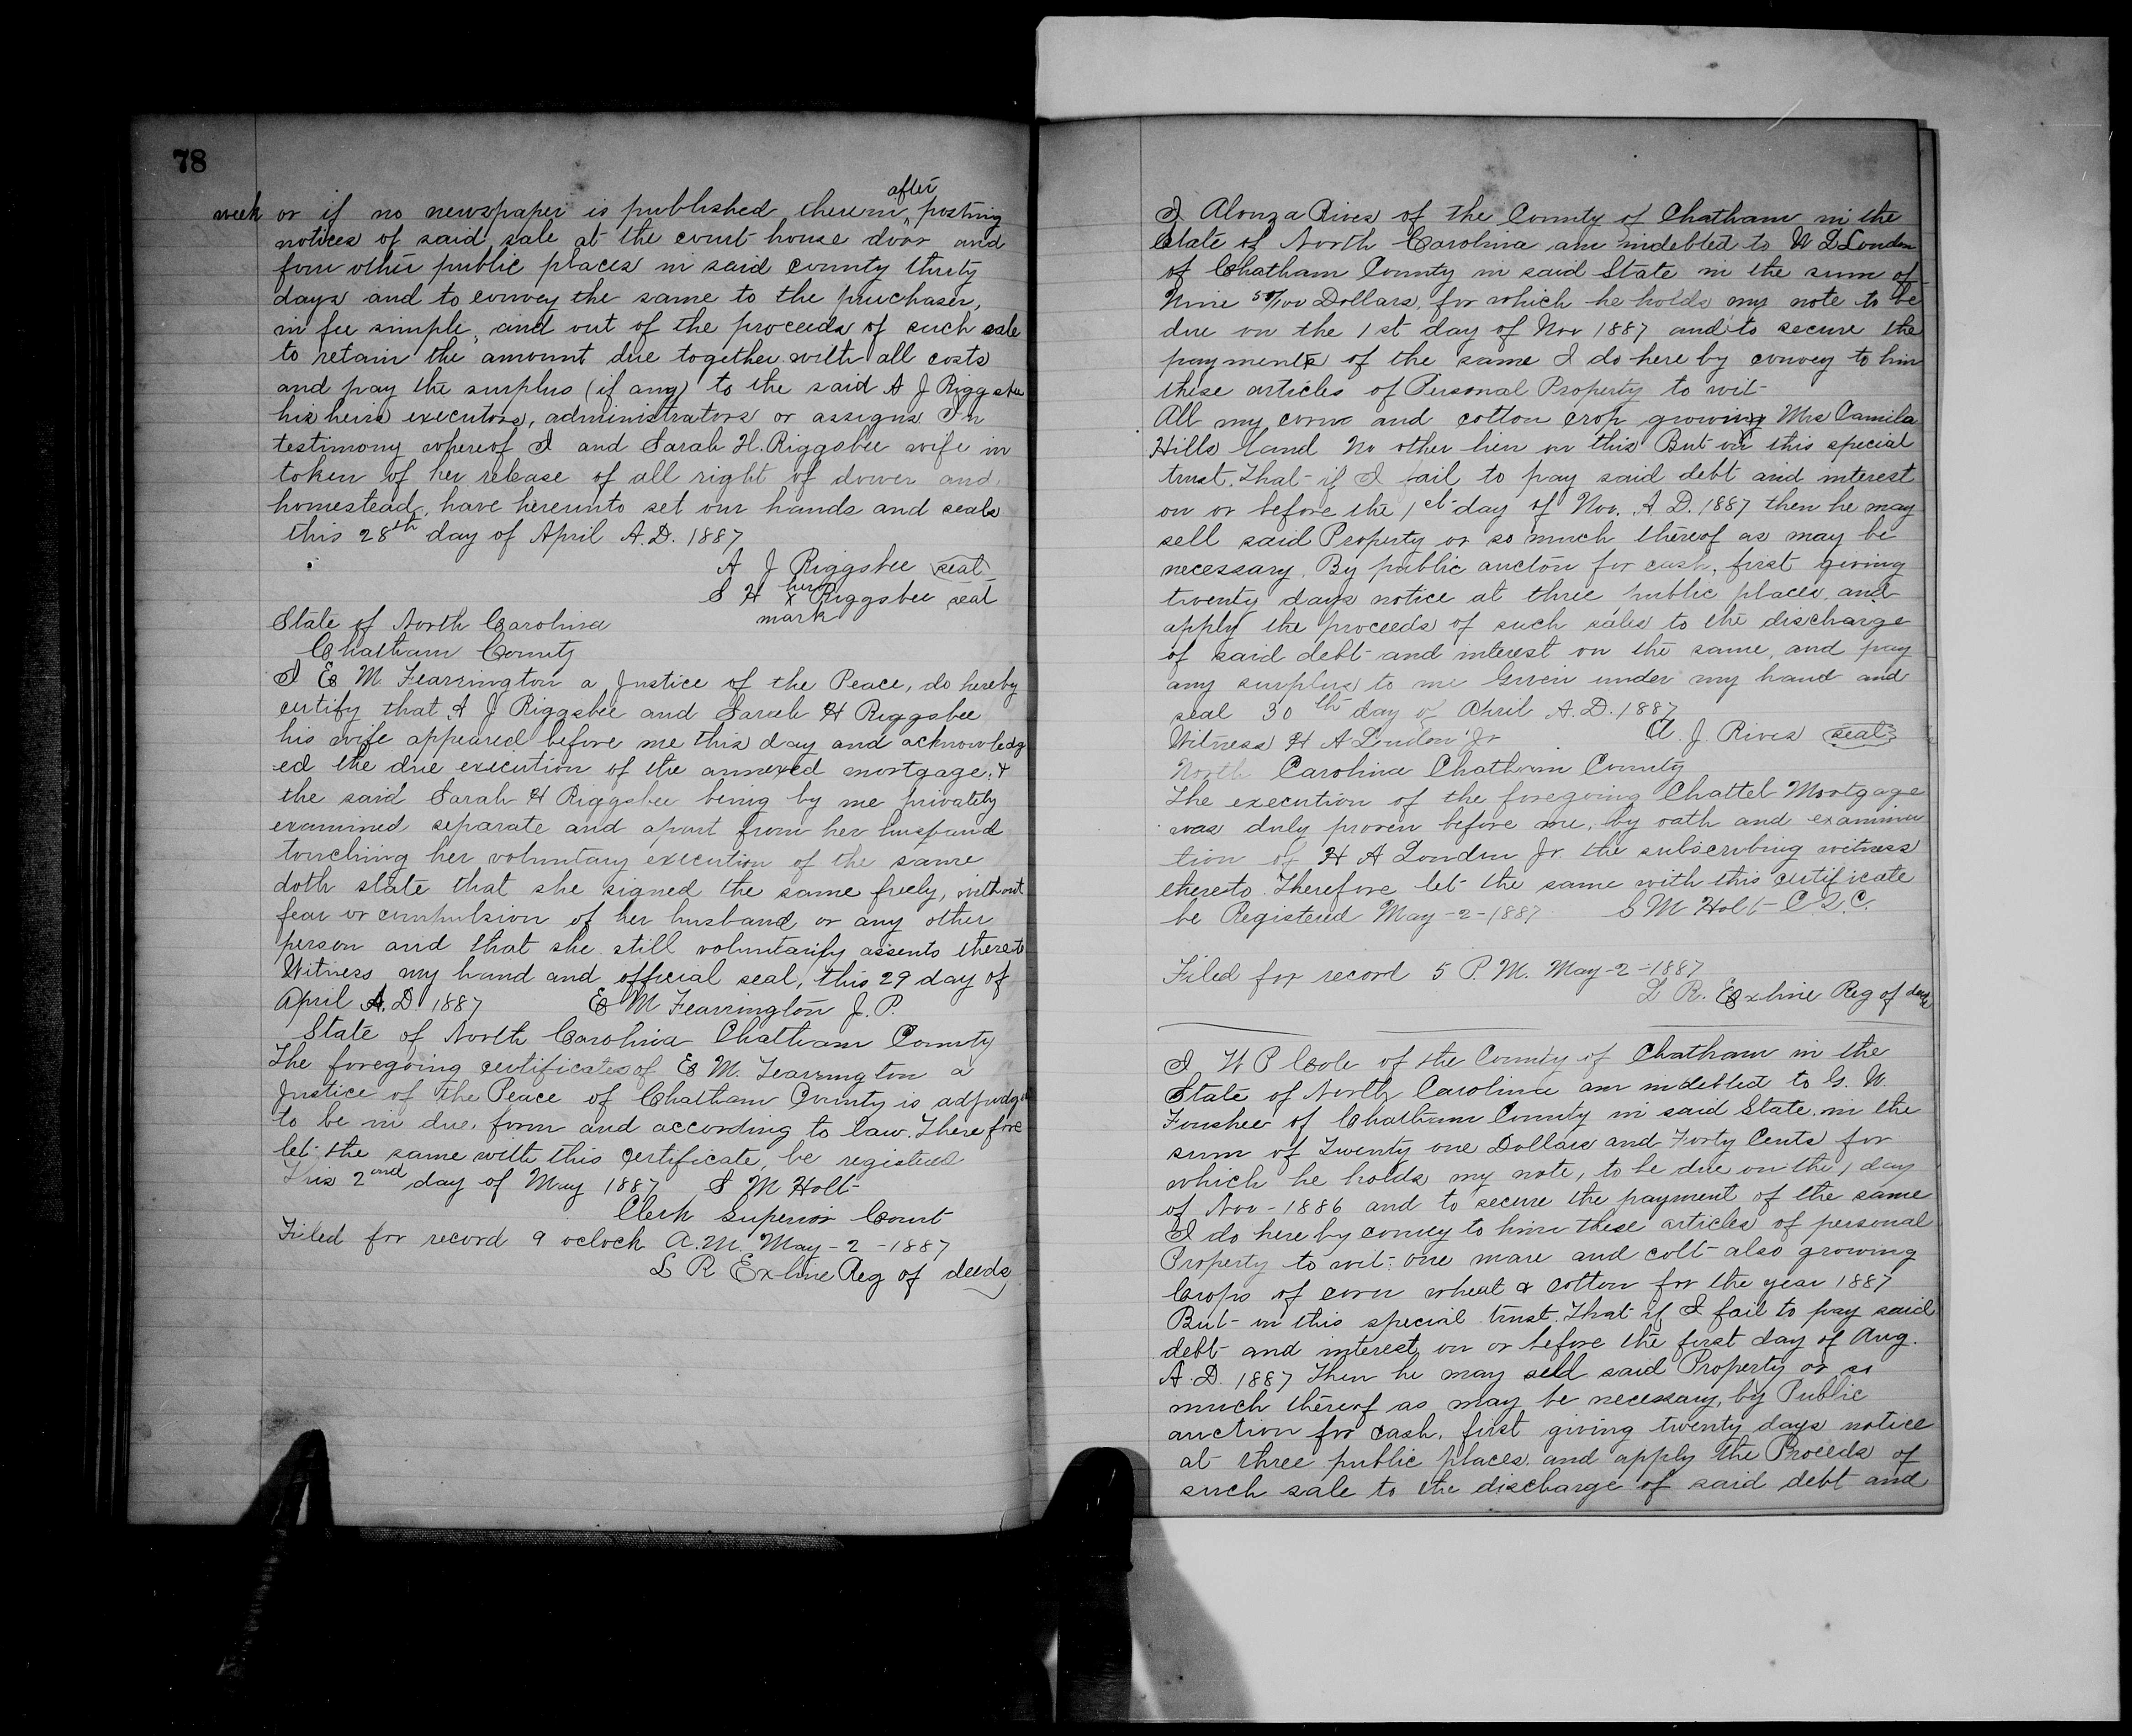 78
week or if no newspaper is published therein, after posting
notices of said sale at the court house door and
four other public places in said county thirty
days and to convey the same to the purchaser,
in fee simple, and out of the proceeds of such sale
to retain the amount due together with all costs
and pay the surplus (if any) to the said A J Riggsbee
his heirs executors, administrators or assigns In
testimony whereof I and Sarah H. Riggsbee wife in
token of her release of all right of dower and
homestead, have hereunto set our hands and seals
this 28th day of April A.D. 1887
A J Riggsbee seal
S H her x mark Riggsbee seal
State of North Carolina
Chatham County
I E M. Fearrington a Justice of the Peace, do hereby
certify that A J Riggsbee and Sarah H Riggsbee
his wife appeared before me this day and acknowledg
ed the due execution of the annexed mortgage, &
the said Sarah H Riggsbee being by me privately
examined separate and apart from her husband
touching her voluntary execution of the same
doth state that she signed the same freely, without
fear or compulsion of her husband or any other
person and that she still voluntarily assents thereto
Witness my hand and official seal, this 29 day of
April A.D. 1887 E M Fearrington J. P.
State of North Carolina Chatham County
The foregoing certificates of E M. Fearrington a
Justice of the Peace of Chatham County is adjudged
to be in due form and according to law. Therefore
let the same with this certificate, be registered
This 2nd day of May 1887 S M Holt
Clerk Superior Court
Filed for record 9 oclock A.M. May-2-1887
L R Exline Reg of deeds
I Alonza Rives of the County of Chatham in the
State of North Carolina am indebted to W L London
of Chatham County in said State in the sum of
Nine 50/100 Dollars, for which he holds my note to be
due on the 1st day of Nov 1887 and to secure the
payment of the same I do here by convey to him
these articles of Personal Property to wit
All my corn and cotton crop growing Mrs Camila
Hills land No other lien on this But on this special
trust. That if I fail to pay said debt and interest
on or before the 1st day of Nov. A D. 1887 then he may
sell said Property or so much thereof as may be
necessary. By public auction for cash, first giving
twenty days notice at three public places, and
apply the proceeds of such sales to the discharge
of said debt and interest on the same, and pay
any surplus to me Given under my hand and
seal 30th day of April A.D. 1887
Witness H A London Jr A. J. Rives seal
North Carolina Chatham County
The execution of the foregoing Chattel Mortgage
was duly proven before me, by oath and examina
tion of H A London Jr. the subscribing witness
thereto. Therefore let the same with this certificate
be Registered May-2-1887 S M Holt C S. C.
Filed for record 5 P. M. May-2-1887
L R. Exline Reg of deeds
I W P Cole of the County of Chatham in the
State of North Carolina am indebted to G. W.
Foushee of Chatham County in said State in the
sum of Twenty one Dollars and Forty Cents for
which he holds my note, to be due on the 1 day
of Nov-1886 and to secure the payment of the same
I do here by convey to him these articles of personal
Property to wit: one mare and colt also growing
Crops of corn wheat & cotton for the year 1887
But in this special trust. That if I fail to pay said
debt and interest on or before the first day of Aug.
A. D. 1887 Then he may sell said Property or so
much thereof as may be necessary, by Public
auction for cash, first giving twenty days notice
at three public places, and apply the Proceeds of
such sale to the discharge of said debt and